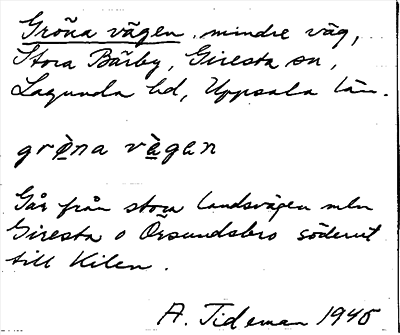 Gröna vägen, mindre väg,
Stora Bärby, Giresta sn,
Lagunda hd, Uppsala län.
grö̀na vä̀gen
Går från stora landsvägen mln
Giresta o Örsundsbro söderut
till Kilen.
A. Tideman 1945